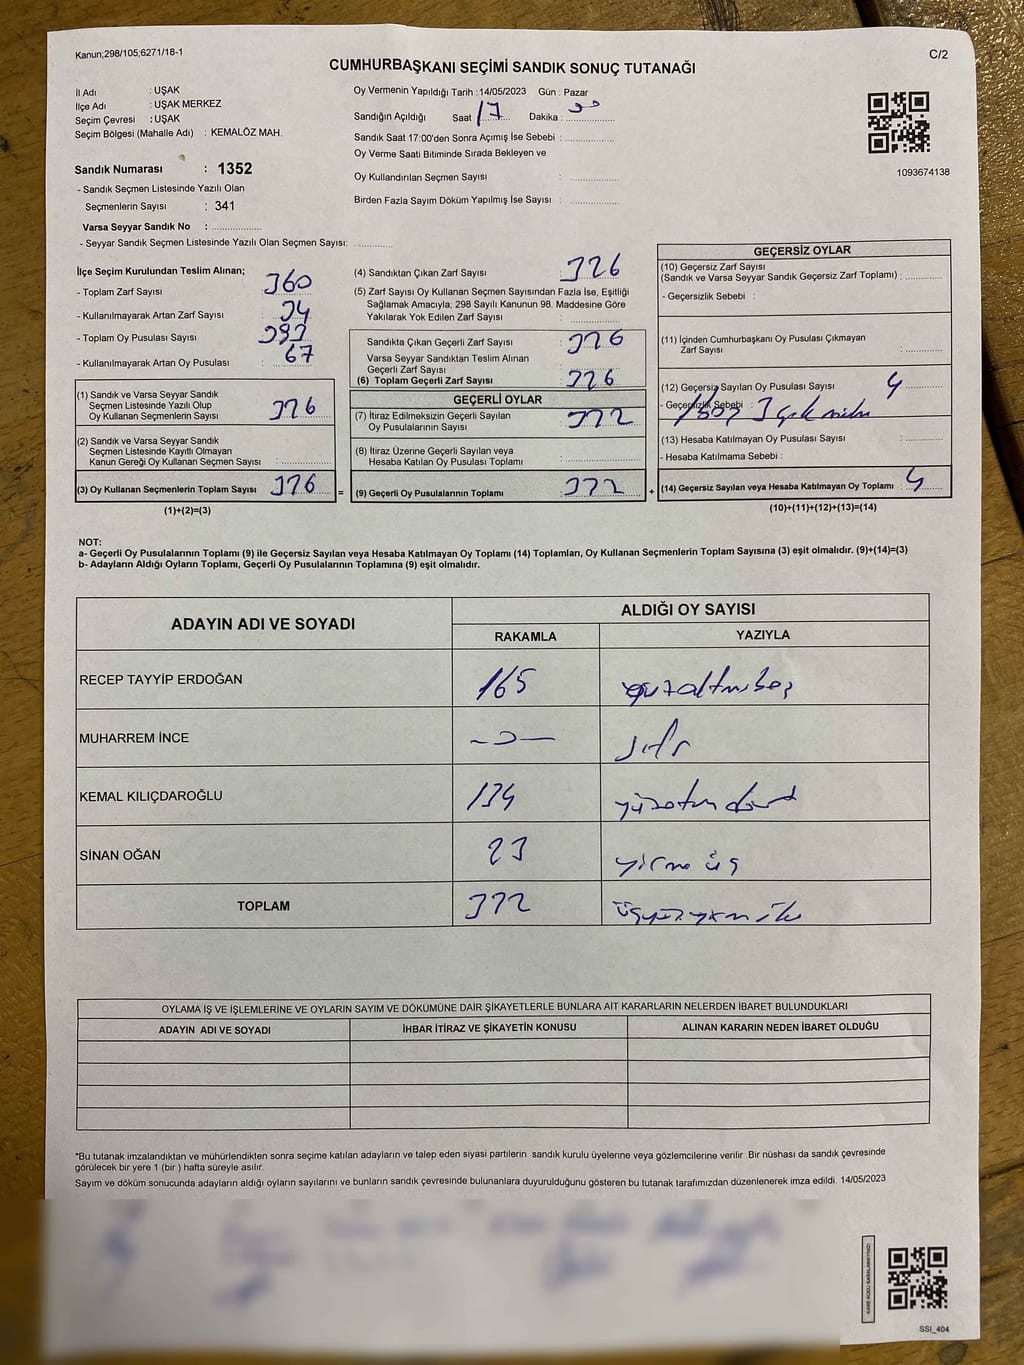 Kanun;298/105;6271/18-1
C/2
CUMHURBAŞKANI SEÇİMİ SANDIK SONUÇ TUTANAĞI
İl Adı : UŞAK
İlçe Adı : UŞAK MERKEZ
Seçim Çevresi : UŞAK
Seçim Bölgesi (Mahalle Adı) : KEMALÖZ MAH.
Sandık Numarası : 1352
- Sandık Seçmen Listesinde Yazılı Olan
Seçmenlerin Sayısı : 341
Varsa Seyyar Sandık No :
- Seyyar Sandık Seçmen Listesinde Yazılı Olan Seçmen Sayısı:
Oy Vermenin Yapıldığı Tarih : 14/05/2023 Gün : Pazar
Sandığın Açıldığı Saat 17 Dakika : 00
Sandık Saat 17:00'den Sonra Açımış İse Sebebi :
Oy Verme Saati Bitiminde Sırada Bekleyen ve
Oy Kullandırılan Seçmen Sayısı :
Birden Fazla Sayım Döküm Yapılmış İse Sayısı :
1093674138
İlçe Seçim Kurulundan Teslim Alınan;
- Toplam Zarf Sayısı : 360
- Kullanılmayarak Artan Zarf Sayısı : 34
- Toplam Oy Pusulası Sayısı : 393
- Kullanılmayarak Artan Oy Pusulası : 67
(1) Sandık ve Varsa Seyyar Sandık
Seçmen Listesinde Yazılı Olup
Oy Kullanan Seçmenlerin Sayısı : 326
(2) Sandık ve Varsa Seyyar Sandık
Seçmen Listesinde Kayıtlı Olmayan
Kanun Gereği Oy Kullanan Seçmen Sayısı :
(3) Oy Kullanan Seçmenlerin Toplam Sayısı : 326
(1)+(2)=(3)
=
(4) Sandıktan Çıkan Zarf Sayısı : 326
(5) Zarf Sayısı Oy Kullanan Seçmen Sayısından Fazla İse, Eşitliği
Sağlamak Amacıyla, 298 Sayılı Kanunun 98. Maddesine Göre
Yakılarak Yok Edilen Zarf Sayısı :
Sandıkta Çıkan Geçerli Zarf Sayısı : 326
Varsa Seyyar Sandıktan Teslim Alınan
Geçerli Zarf Sayısı :
(6) Toplam Geçerli Zarf Sayısı : 326
GEÇERLİ OYLAR
(7) İtiraz Edilmeksizin Geçerli Sayılan
Oy Pusulalarının Sayısı : 322
(8) İtiraz Üzerine Geçerli Sayılan veya
Hesaba Katılan Oy Pusulası Toplamı :
(9) Geçerli Oy Pusulalarının Toplamı : 322
+
GEÇERSİZ OYLAR
(10) Geçersiz Zarf Sayısı
(Sandık ve Varsa Seyyar Sandık Geçersiz Zarf Toplamı) :
- Geçersizlik Sebebi :
(11) İçinden Cumhurbaşkanı Oy Pusulası Çıkmayan
Zarf Sayısı :
(12) Geçersiz Sayılan Oy Pusulası Sayısı : 4
- Geçersizlik Sebebi :
(13) Hesaba Katılmayan Oy Pusulası Sayısı :
- Hesaba Katılmama Sebebi :
(14) Geçersiz Sayılan veya Hesaba Katılmayan Oy Toplamı : 4
(10)+(11)+(12)+(13)=(14)
NOT:
a- Geçerli Oy Pusulalarının Toplamı (9) ile Geçersiz Sayılan veya Hesaba Katılmayan Oy Toplamı (14) Toplamları, Oy Kullanan Seçmenlerin Toplam Sayısına (3) eşit olmalıdır. (9)+(14)=(3)
b- Adayların Aldığı Oyların Toplamı, Geçerli Oy Pusulalarının Toplamına (9) eşit olmalıdır.
ADAYIN ADI VE SOYADI
ALDIĞI OY SAYISI
RAKAMLA YAZIYLA
RECEP TAYYİP ERDOĞAN 165 yüzaltmışbeş
MUHARREM İNCE -0- sıfır
KEMAL KILIÇDAROĞLU 134 yüzotuzdört
SİNAN OĞAN 23 yirmi üç
TOPLAM 322 üçyüzyirmi iki
OYLAMA İŞ VE İŞLEMLERİNE VE OYLARIN SAYIM VE DÖKÜMÜNE DAİR ŞİKAYETLERLE BUNLARA AİT KARARLARIN NELERDEN İBARET BULUNDUKLARI
ADAYIN ADI VE SOYADI İHBAR İTİRAZ VE ŞİKAYETİN KONUSU ALINAN KARARIN NEDEN İBARET OLDUĞU
*Bu tutanak imzalandıktan ve mühürlendikten sonra seçime katılan adayların ve talep eden siyasi partilerin sandık kurulu üyelerine veya gözlemcilerine verilir .Bir nüshası da sandık çevresinde
görülecek bir yere 1 (bir ) hafta süreyle asılır.
Sayım ve döküm sonucunda adayların aldığı oyların sayılarını ve bunların sandık çevresinde bulunanlara duyurulduğunu gösteren bu tutanak tarafımızdan düzenlenerek imza edildi. 14/05/2023
KARE KODU KARALAMAYINIZ!
SSI_404